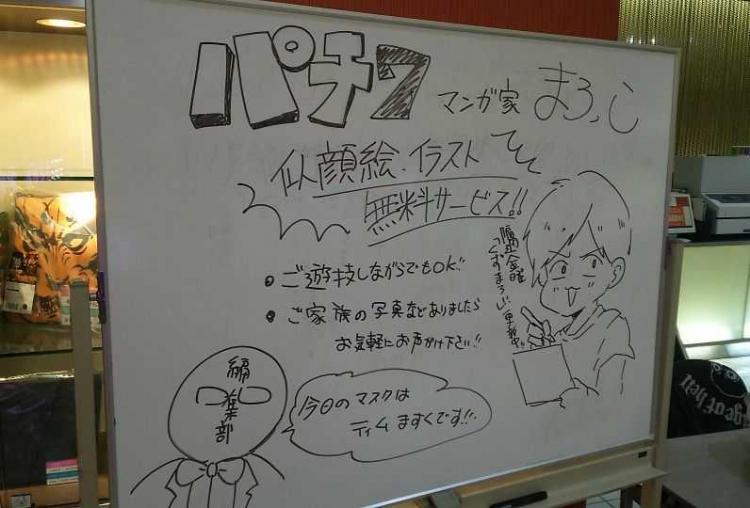 パチ7
マンガ家 まろ,し
似顔絵.イラスト
無料サービス!!
・ご遊技しながらでもOK!!
・ご家族の写真などありましたら
お気軽にお声がけ下さい!!
隔週金曜
編集部
今日のマスクは
ティムますくです!!